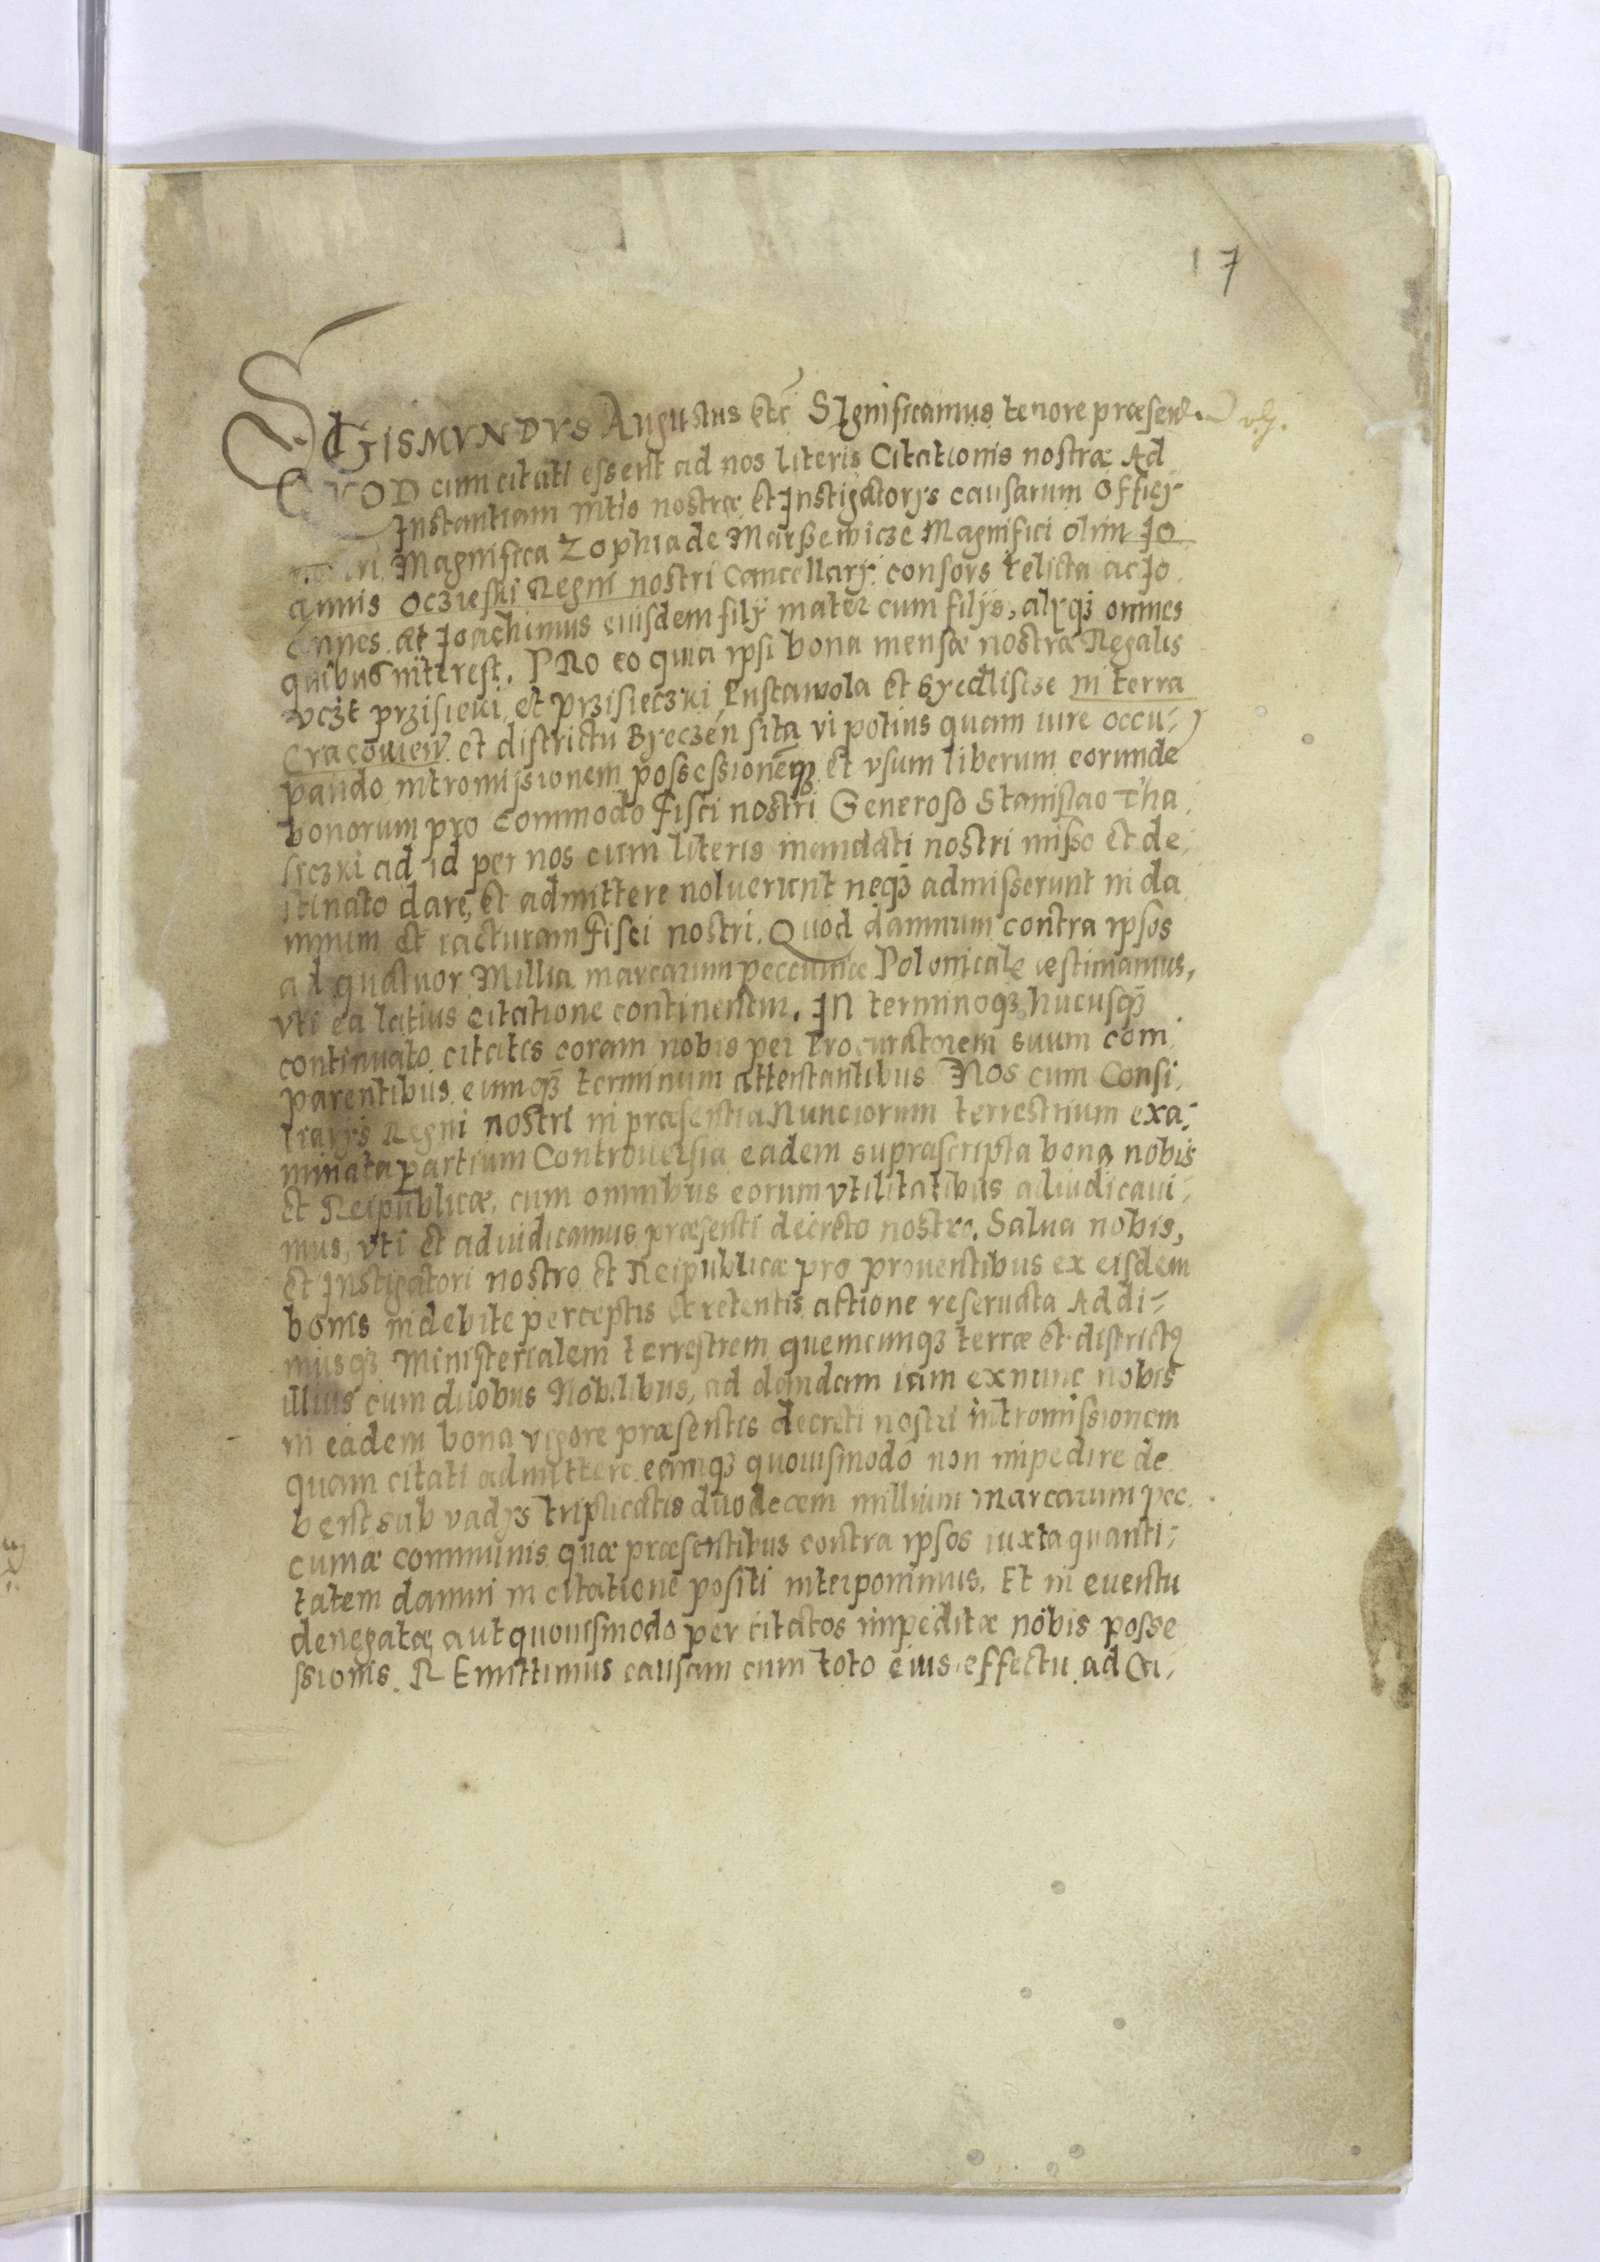 17
SIGISMVNDVS Augustus etc SIgnificamus tenore præsen.
QVOD cum citati essent ad nos literis Citationis nostræ Ad
Instantiam intio nostræ et Instigatorys causarum Officij
nostri Magnifica Zophia de Marssewicze Magnifici olim Io
annis Oczieski Regni nostri Cancellarij consors relicta ac Jo
annes at Joachimus eiusdem filij mater cum filijs, alijqȝ omnes
quibus interest. PRo eo quia ipsi bona mensæ nostræ Regalis
vczt przisieki et przisieczki Lustawola et Syedliscze in terra
Cracouien et districtu Byeczen sita vi potius quam iure occu-
pando intromissionem possessionemqȝ et vsum liberum eorunde
bonorum pro commodo Fisci nostri Generoso Stanislao Tha
siczki ad id per nos cum literis mandati nostri misso et de
stinato dare, et admittere noluerunt neqȝ admisserunt in da
mnum et iacturam Fisci nostri. Quod damnum contra ipsos
ad quatuor Millia marcarum peccuniæ Polonicale æstimamus,
vti ea latius citatione continentur. IN terminoqȝ hucusqȝ
continuato citatis coram nobis per Procuratorem suum com
parentibus eumqȝ terminum attentantibus Nos cum Consi
liarijs Regni nostri in præsentia Nunciorum terrestrium exa-
minata partium Controuersia eadem suprascripta bona nobis
et Reipublicæ, cum omnibus eorum vtilitatibus adiudicaui-
mus, vti et adiudicamus præsenti decreto nostro. Salua nobis,
et Instigatori nostro et Reipublicæ pro prouentibus ex eisdem
bonis indebite perceptis et retentis actione reseruata Addi-
musqȝ Ministerialem terrestrem quemcunqȝ terræ et districtꝰ
illius cum duobus Nobilibus, ad dandam iam ex nunc nobis
in eadem bona vigore præsentis decreti nostri intromissionem
quam citati admittere eamqȝ quouismodo non impedire de
bent sub vadijs triplicatis duodecem millium marcarum pec
cuniæ communis quæ præsentibus contra ipsos iuxta quanti-
tatem damni in citatione positi interponimus. Et in euentu
denegatæ, aut quouismodo per citatos impeditæ nobis posse
ssionis. REmittimus causam cum toto eius effectu ad Ca-